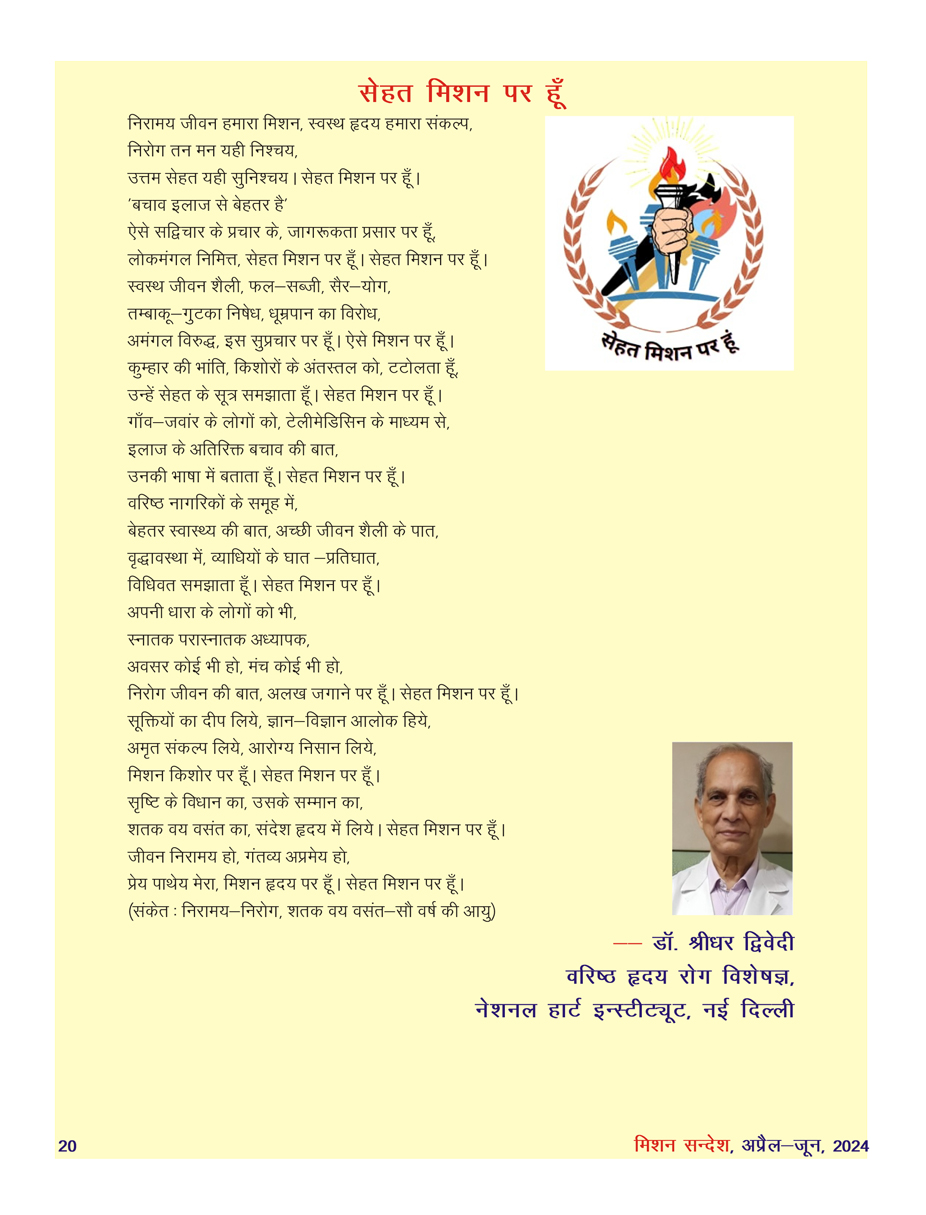 सेहत मिशन पर हूँ
निरामय जीवन हमारा मिशन, स्वस्थ हृदय हमारा संकल्प,
निरोग तन मन यही निश्चय,
उत्तम सेहत यही सुनिश्चय। सेहत मिशन पर हूँ।
'बचाव इलाज से बेहतर है'
ऐसे सद्विचार के प्रचार के, जागरूकता प्रसार पर हूँ,
लोकमंगल निमित्त, सेहत मिशन पर हूँ। सेहत मिशन पर हूँ।
स्वस्थ जीवन शैली, फल–सब्जी, सैर–योग,
तम्बाकू–गुटका निषेध, धूम्रपान का विरोध,
अमंगल विरुद्ध, इस सुप्रचार पर हूँ। ऐसे मिशन पर हूँ।
कुम्हार की भांति, किशोरों के अंतस्तल को, टटोलता हूँ,
उन्हें सेहत के सूत्र समझाता हूँ। सेहत मिशन पर हूँ।
गाँव–जवांर के लोगों को, टेलीमेडिसिन के माध्यम से,
इलाज के अतिरिक्त बचाव की बात,
उनकी भाषा में बताता हूँ। सेहत मिशन पर हूँ।
वरिष्ठ नागरिकों के समूह में,
बेहतर स्वास्थ्य की बात, अच्छी जीवन शैली के पात,
वृद्धावस्था में, व्याधियों के घात –प्रतिघात,
विधिवत समझाता हूँ। सेहत मिशन पर हूँ।
अपनी धारा के लोगों को भी,
स्नातक परास्नातक अध्यापक,
अवसर कोई भी हो, मंच कोई भी हो,
निरोग जीवन की बात, अलख जगाने पर हूँ। सेहत मिशन पर हूँ।
सूक्तियों का दीप लिये, ज्ञान–विज्ञान आलोक हिये,
अमृत संकल्प लिये, आरोग्य निसान लिये,
मिशन किशोर पर हूँ। सेहत मिशन पर हूँ।
सृष्टि के विधान का, उसके सम्मान का,
शतक वय वसंत का, संदेश हृदय में लिये। सेहत मिशन पर हूँ।
जीवन निरामय हो, गंतव्य अप्रमेय हो,
प्रेय पाथेय मेरा, मिशन हृदय पर हूँ। सेहत मिशन पर हूँ।
(संकेत : निरामय–निरोग, शतक वय वसंत–सौ वर्ष की आयु)
सेहत मिशन पर हूं
–– डॉ. श्रीधर द्विवेदी
वरिष्ठ हृदय रोग विशेषज्ञ,
नेशनल हार्ट इन्स्टीट्यूट, नई दिल्ली
20
मिशन सन्देश, अप्रैल–जून, 2024